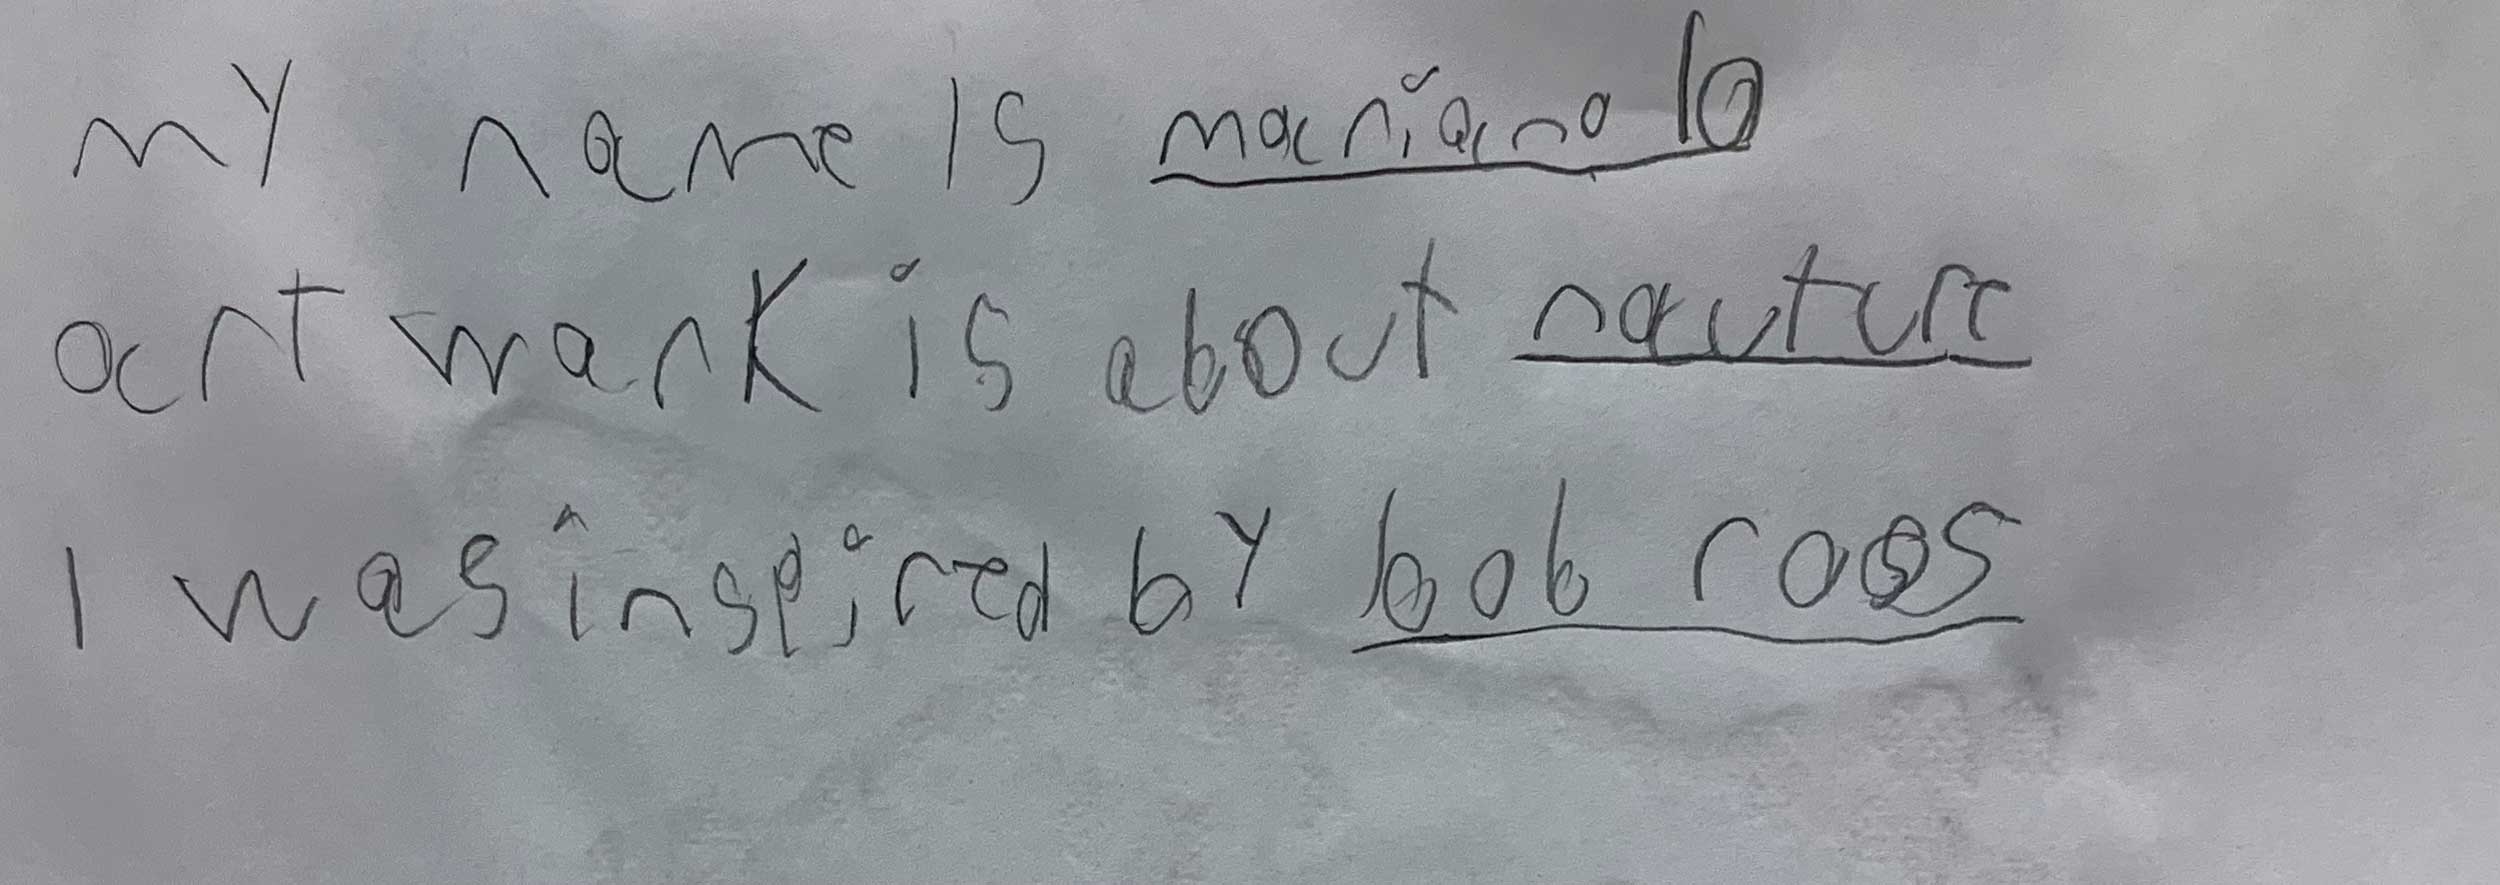 my name is mariano b
art wark is about nauture
I was inspired by bob ross